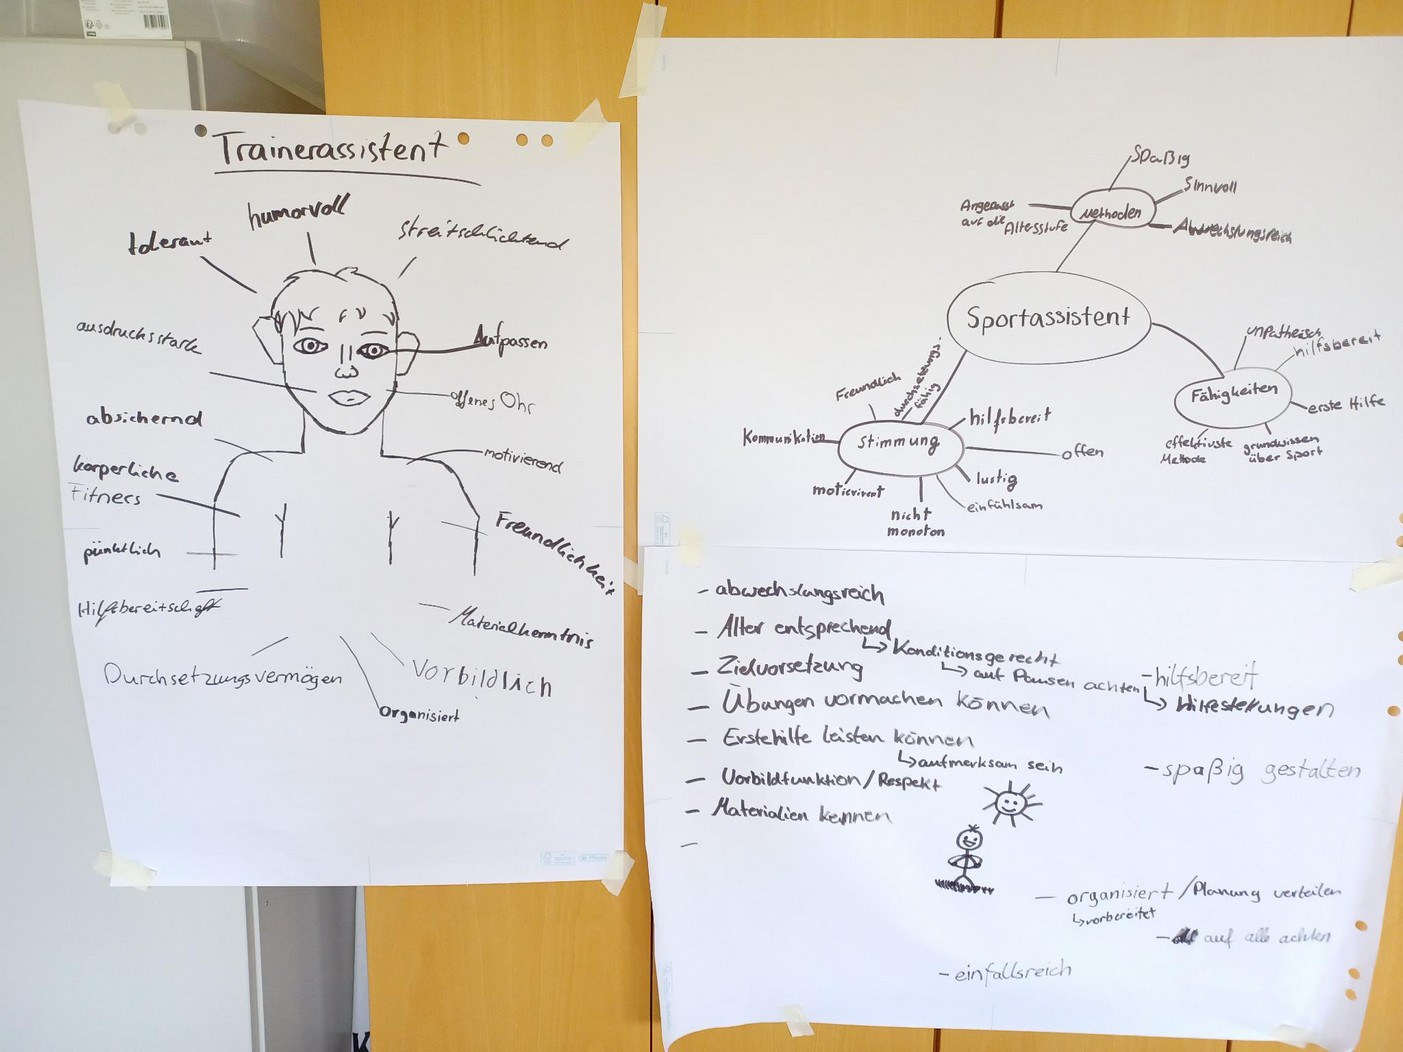 Trainerassistent
humorvoll
tolerant
streitschlichtend
ausdrucksstark
Aufpassen
offenes Ohr
absichernd
motivierend
körperliche
Fitness
Freundlichkeit
pünktlich
Hilfsbereitschaft
Materialkenntnis
Durchsetzungsvermögen
Vorbildlich
Organisiert
Spaßig
Sinnvoll
Angepasst
auf die Altersstufe
Methoden
Abwechslungsreich
Sportassistent
Freundlich
durchsetzungs-
fähig
Kommunikation
Stimmung
hilfsbereit
offen
lustig
einfühlsam
nicht
monoton
hilfsbereit
Fähigkeiten
erste Hilfe
effektivste
Methode
grundwissen
über Sport
- abwechslungsreich
- Alter entsprechend
↳ Konditionsgerecht
↳ auf Pausen achten
- Zielvorsetzung
- Übungen vormachen können
- Erstehilfe leisten können
↳ aufmerksam sein
- Vorbildfunktion/Respekt
- Materialien kennen
-
- hilfsbereit
↳ Hilfestellungen
- spaßig gestalten
- organisiert/Planung verteilen
↳ vorbereitet
- auf alle achten
- einfallsreich
K